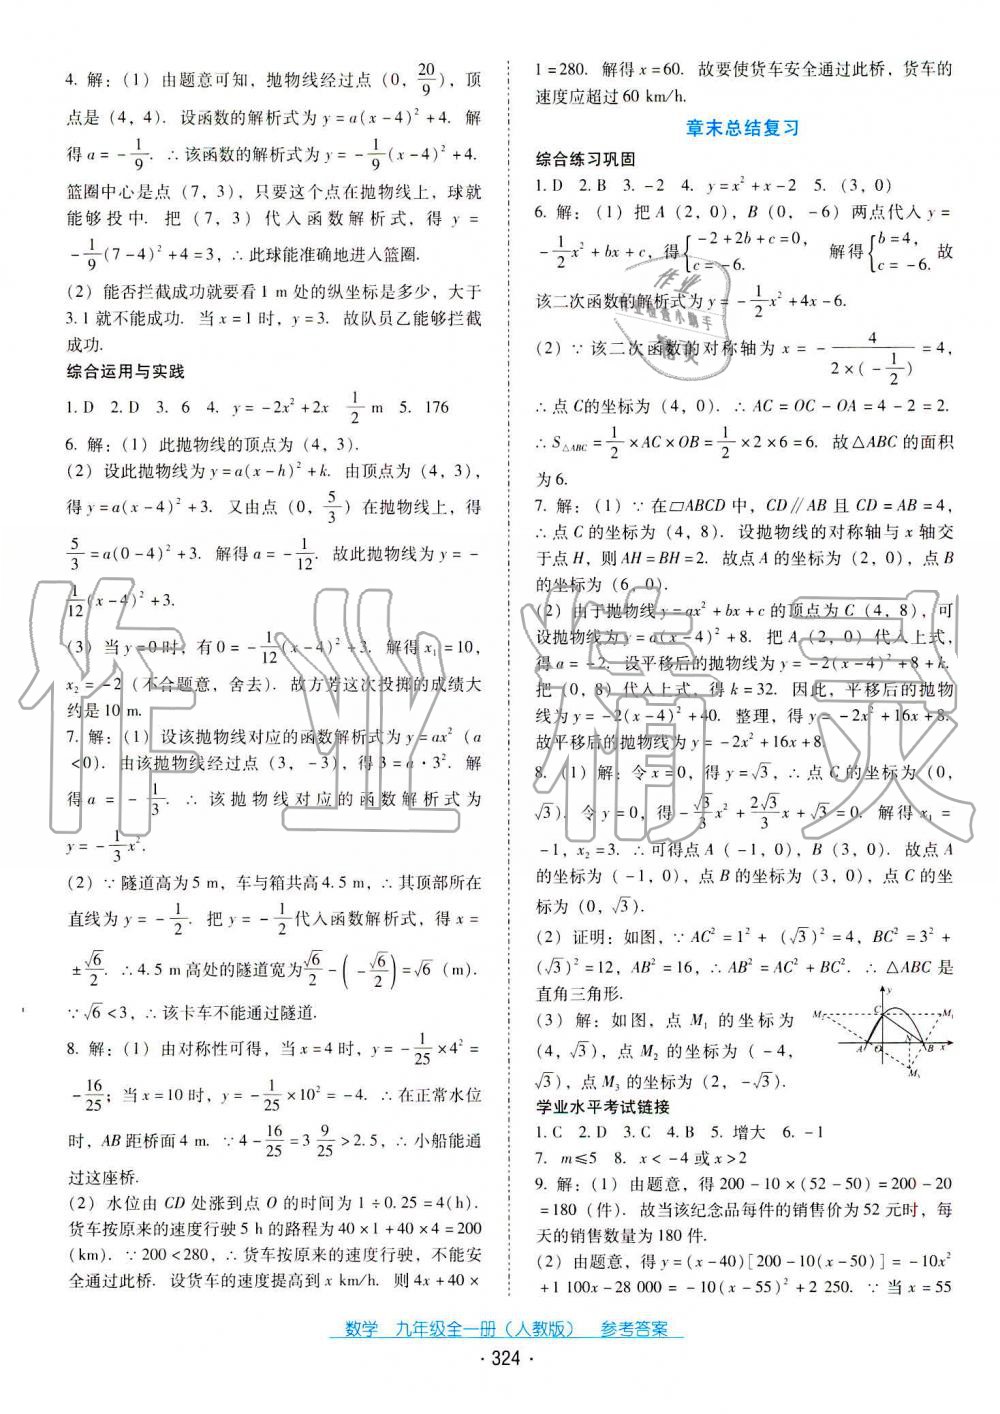 4. 解：(1) 由题意可知，抛物线经过点 (0, 20/9)，顶
点是 (4, 4). 设函数的解析式为 y=a(x-4)²+4. 解
得 a=-1/9. ∴该函数的解析式为 y=-1/9(x-4)²+4.
篮圈中心是点 (7, 3)，只要这个点在抛物线上，球就
能够投中. 把 (7, 3) 代入函数解析式，得 y=
-1/9(7-4)²+4=3，∴此球能准确地进入篮圈.
(2) 能否拦截成功就要看 1 m 处的纵坐标是多少，大于
3.1 就不能成功. 当 x=1 时，y=3. 故队员乙能够拦截
成功.
综合运用与实践
1. D 2. D 3. 6 4. y=-2x²+2x 1/2 m 5. 176
6. 解：(1) 此抛物线的顶点为 (4, 3).
(2) 设此抛物线为 y=a(x-h)²+k. 由顶点为 (4, 3)，
得 y=a(x-4)²+3. 又由点 (0, 5/3) 在抛物线上，得
5/3=a(0-4)²+3. 解得 a=-1/12. 故此抛物线为 y=-
1/12(x-4)²+3.
(3) 当 y=0 时，有 0=-1/12(x-4)²+3. 解得 x₁=10，
x₂=-2 (不合题意，舍去). 故方芳这次投掷的成绩大
约是 10 m.
7. 解：(1) 设该抛物线对应的函数解析式为 y=ax² (a
<0). 由该抛物线经过点 (3, -3)，得 3=a·3². 解
得 a=-1/3. ∴该抛物线对应的函数解析式为
y=-1/3x².
(2) ∵隧道高为 5 m，车与箱共高 4.5 m，∴其顶部所在
直线为 y=-1/2. 把 y=-1/2代入函数解析式，得 x=
±√6/2. ∴4.5 m 高处的隧道宽为√6/2-(-√6/2)=√6 (m).
∵√6<3，∴该卡车不能通过隧道.
8. 解：(1) 由对称性可得，当 x=4 时，y=-1/25×4²=
-16/25；当 x=10 时，y=-1/25×10²=-4. ∴在正常水位
时，AB 距桥面 4 m. ∵4-16/25=3 9/25>2.5，∴小船能通
过这座桥.
(2) 水位由 CD 处涨到点 O 的时间为 1÷0.25=4(h).
货车按原来的速度行驶 5 h 的路程为 40×1+40×4=200
(km). ∵200<280，∴货车按原来的速度行驶，不能安
全通过此桥. 设货车的速度提高到 x km/h. 则 4x+40×
1=280. 解得 x=60. 故要使货车安全通过此桥，货车的
速度应超过 60 km/h.
章末总结复习
综合练习巩固
1. D 2. B 3. -2 4. y=x²+x-2 5. (3, 0)
6. 解：(1) 把 A (2, 0)，B (0, -6) 两点代入 y=
-1/2x²+bx+c，得{-2+2b+c=0, c=-6. 解得{b=4, c=-6. 故
该二次函数的解析式为 y=-1/2x²+4x-6.
(2) ∵该二次函数的对称轴为 x=-4/(2×(-1/2))=4，
∴点 C的坐标为 (4, 0). ∴AC=OC-OA=4-2=2.
∴S△ABC=1/2×AC×OB=1/2×2×6=6. 故△ABC 的面积
为 6.
7. 解：(1) ∵在▱ABCD 中，CD∥AB 且 CD=AB=4，
∴点 C 的坐标为 (4, 8). 设抛物线的对称轴与 x 轴交
于点 H，则 AH=BH=2. 故点 A 的坐标为 (2, 0)，点 B
的坐标为 (6, 0).
(2) 由于抛物线 y=ax²+bx+c 的顶点为 C (4, 8)，可
设抛物线为 y=a(x-4)²+8. 把 A (2, 0) 代入上式，
得 a=-2. 设平移后的抛物线为 y=-2(x-4)²+8+k.
把 (0, 8) 代入上式，得 k=32. 因此，平移后的抛物
线为 y=-2(x-4)²+40. 整理，得 y=-2x²+16x+8.
故平移后的抛物线为 y=-2x²+16x+8.
8. (1) 解：令 x=0，得 y=√3，∴点 C 的坐标为 (0,
√3). 令 y=0，得 -√3/3x²+2√3/3x+√3=0. 解得 x₁=
-1，x₂=3. ∴可得点 A (-1, 0)，B (3, 0). 故点 A
的坐标为 (-1, 0)，点 B 的坐标为 (3, 0)，点 C 的坐
标为 (0, √3).
(2) 证明：如图，∵AC²=1²+(√3)²=4，BC²=3²+
(√3)²=12，AB²=16，∴AB²=AC²+BC². ∴△ABC 是
直角三角形.
(3) 解：如图，点 M₁ 的坐标为
(4, √3)，点 M₂ 的坐标为 (-4,
√3)，点 M₃ 的坐标为 (2, -√3).
y
M₂ C M₁
A O N B x
M₃
学业水平考试链接
1. C 2. D 3. C 4. B 5. 增大 6. -1
7. m≤5 8. x<-4 或 x>2
9. 解：(1) 由题意，得 200-10×(52-50)=200-20
=180 (件). 故当该纪念品每件的销售价为 52 元时，每
天的销售数量为 180 件.
(2) 由题意，得 y=(x-40)[200-10(x-50)]=-10x²
+1 100x-28 000=-10(x-55)²+2 250. ∵当 x=55
数学 九年级全一册（人教版） 参考答案
· 324 ·
作业精灵
作业
作业检查小助手
精灵